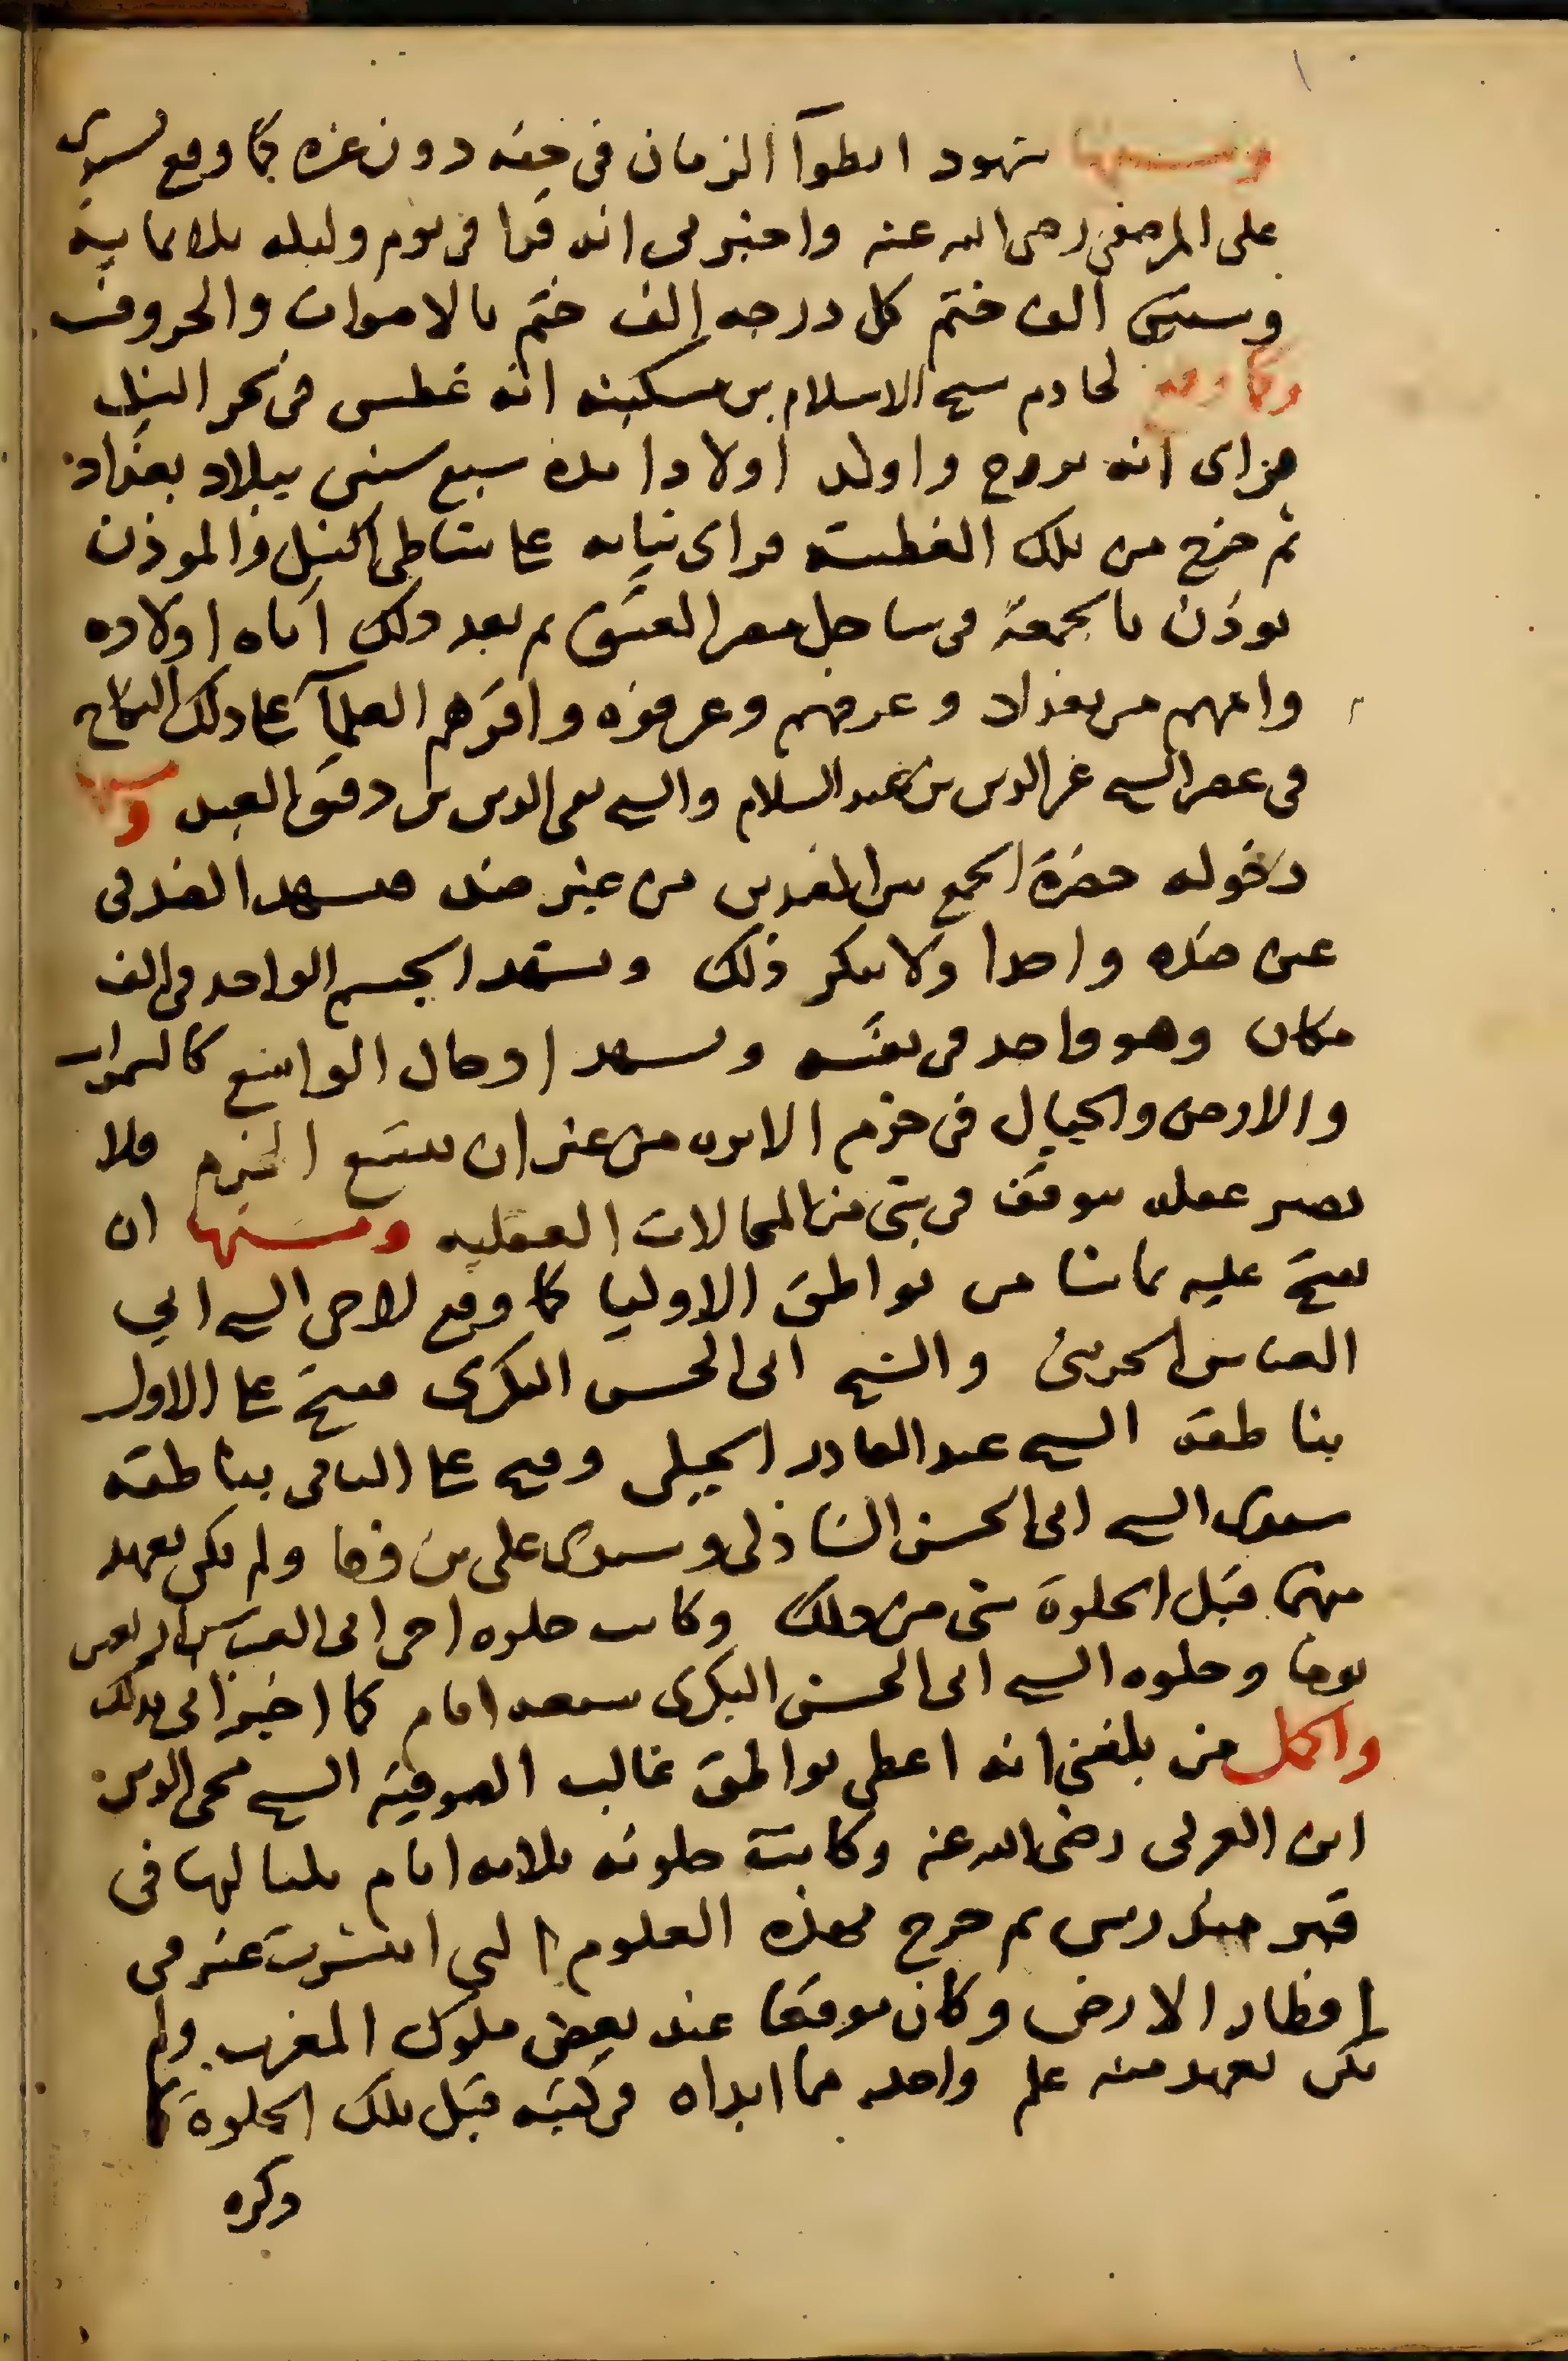 ومنها شهود انطوآ الزمان فى حقه دون غيره كما وقع لسيدى
على المرصفى رضى الله عنه واخبرنى انه قرا فى يوم وليله ثلاثماية
وستين الف ختم كل درجه الف ختم بالاصوات والحروف
وكما وقع لخادم شيخ الاسلام بن سكينه انه غطس فى بحر النيل
فراى انه تزوج واولد اولادا مدة سبع سنين ببلاد بغداد
ثم خرج من تلك الغطسة فراى ثيابه على شاطى النيل والموذن
يوذن بالجمعة فى ساحل مصر العتيق ثم بعد ذلك اتاه اولاده
وامهم من بغداد وعرفهم وعرفوه واقرهم العلمآ على ذلك النكاح
فى عصر الشيخ عز الدين بن عبد السلام والشيخ تقى الدين بن دقيق العيد ومنها
دخوله حضرة الجمع بين الضدين من غير ضد فيشهد الضد فى
عين ضده واحدا ولا ينكر ذلك ويشهد الجسم الواحد فى الف
مكان وهو واحد فى نفسه ويشهد ادخال الواسع كالسموات
والارض والجبال فى خرم الابره من غير ان يتسع الخرم فلا
يصير عقله يتوقف فى شى من المحالات العقليه ومنها ان
يفتح عليه بما شا من نواطق الاوليا كما وقع لاخى الشيخ ابي
العباس الحريثى والشيخ ابى الحسن البكرى ففتح على الاول
بناطقة الشيخ عبد القادر الجيلى وفتح على الثانى بناطقه
سيدى الشيخ ابى الحسن الشاذلى وسيدى على بن وفا ولم يكن يعهد
منهما قبل الخلوة شى من ذلك وكانت خلوه اخى ابى العباس اربعين
يوما وخلوه الشيخ ابى الحسن البكرى سبعه ايام كما اخبرانى بذلك
واكمل من بلغنى انه اعطى نواطق غالب الصوفية الشيخ محى الدين
ابن العربى رضى الله عنه وكانت خلوته ثلاثه ايام بلياليها فى
قبر مندرس ثم خرج بهذه العلوم التى انتشرت عنه فى
اقطار الارض وكان موقعا عند بعض ملوك المغرب ولم
يكن يعهد منه علم واحد مما ابداه فى كتبه قبل تلك الخلوة كما
ذكره